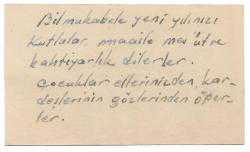 Bilmukabele yeni yılınızı
kutlular, maaile mes'ut ve
bahtiyarlık dilerler.
Çocuklar ellerinizden kar-
deşlerinin gözlerinden öper-
ler.